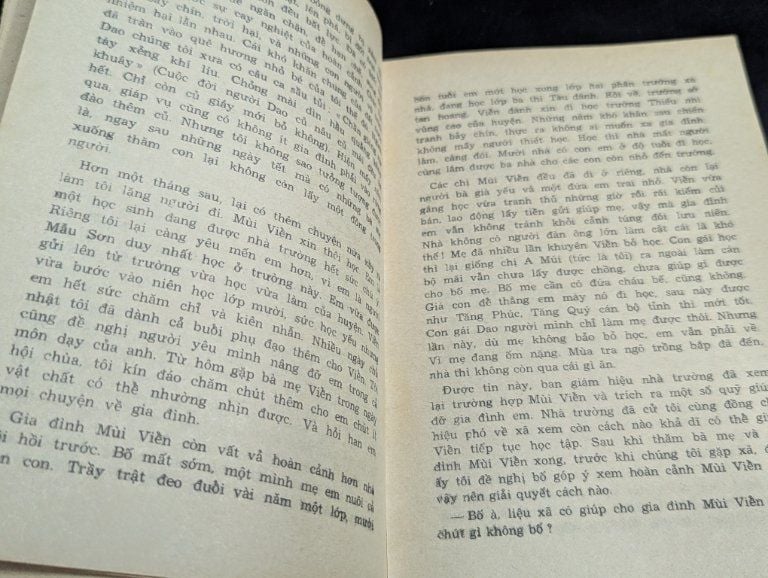 nhiệm hại lẫn nhau. Cái khó khăn chung của
đã tràn vào quê hương nhỏ bé của tôi thế đó.
Dao chúng tôi xưa có câu ca sầu tủi « Chìa
tay xểng khí líu. Chồng mài đìn hâu quãng
khuây » (Cuộc đời người Dao củ nâu cổ
hết. Chỉ còn củ giáy mới bỏ không). Hiện nay
qua, giáp vụ cũng có không ít gia đình phải vào
đào thêm củ. Nhưng tôi không sao tưởng tượng
là, ngay sau những ngày tết mà có những
xuống thăm con lại không còn lấy một đồng
người.
Hơn một tháng sau, lại có thêm chuyện nữa xảy
làm tôi lặng người đi. Mùi Viễn xin thôi học
một học sinh đang được nhà trường hết sức chú ý.
Riêng tôi lại càng yêu mến em hơn, vì em là người
Mẫu Sơn duy nhất học ở trường này. Em vừa được
gửi lên từ trường vừa học vừa làm của huyện. Viễn
vừa bước vào niên học lớp mười, sức học yếu nhưng
em hết sức chăm chỉ và kiên nhẫn. Nhiều ngày chủ
nhật tôi đã dành cả buổi phụ đạo thêm cho Viễn. Tôi
cũng đề nghị người yêu mình nâng đỡ em trong cả
môn dạy của anh. Từ hôm gặp bà mẹ Viễn trong ngày
hội chùa, tôi kín đáo chăm chút thêm cho em chút ít
vật chất có thể nhường nhịn được. Và hỏi han em
mọi chuyện về gia đình.
Gia đình Mùi Viễn còn vất vả hoàn cảnh hơn nhà
hồi trước. Bố mất sớm, một mình mẹ em nuôi cả
con. Trầy trật đeo đuổi vài năm một lớp, mười
bốn tuổi em mới học xong lớp hai phân trường xa
nhà, đang học lớp ba thì Tàu đánh. Rồi về, trường sở
tan hoang. Viễn đành xin đi học trường Thiếu nhi
vùng cao của huyện. Những năm khó khăn sau chiến
tranh bảy chín, thực ra không ai muốn xa gia đình,
không mấy người thiết học. Học thì nhà mất người
làm, càng đói. Mười nhà có con em ở độ tuổi đi học,
cùng lắm được ba nhà cho các con còn nhỏ đến trường.
Các chị Mùi Viễn đều đã đi ở riêng, nhà còn lại
người bà già yếu và một đứa em trai nhỏ. Viễn vừa
gắng học vừa tranh thủ những giờ rỗi rồi kiếm củi
bán, lao động lấy tiền gửi giúp mẹ, vậy mà gia đình
em vẫn không tránh khỏi cảnh túng đói lưu niên.
Nhà không có người đàn ông lớn làm cột cái là khó
thế! Mẹ đã nhiều lần khuyên Viễn bỏ học. Con gái học
thì lại giống chị A Múi (tức là tôi) ra ngoài làm cán
bộ mãi vẫn chưa lấy được chồng, chưa giúp gì được
cho bố mẹ. Bố mẹ cần có đứa cháu bế, cũng không.
Giá con để thằng em mày nó đi học, sau này được
như Tăng Phúc, Tăng Quý cán bộ tỉnh thì mới tốt.
Con gái Dao người mình chỉ làm mẹ được thôi. Nhưng
lần này, dù mẹ không bảo bỏ học, em vẫn phải về.
Vì mẹ đang ốm nặng. Mùa tra ngô trồng bắp đã đến,
nhà thì không còn qua cái gì ăn.
Được tin này, ban giám hiệu nhà trường đã xem
lại trường hợp Mùi Viễn và trích ra một số quỹ giúp
đỡ gia đình em. Nhà trường đã cử tôi cùng đồng chí
hiệu phó về xã xem còn cách nào khả dĩ có thể giúp
Viễn tiếp tục học tập. Sau khi thăm bà mẹ và
đình Mùi Viễn xong, trước khi chúng tôi gặp xã,
ấy tôi đề nghị bố góp ý xem hoàn cảnh Mùi Viễn
vậy nên giải quyết cách nào.
— Bố à, liệu xã có giúp cho gia đình Mùi Viễn
chút gì không bố ?